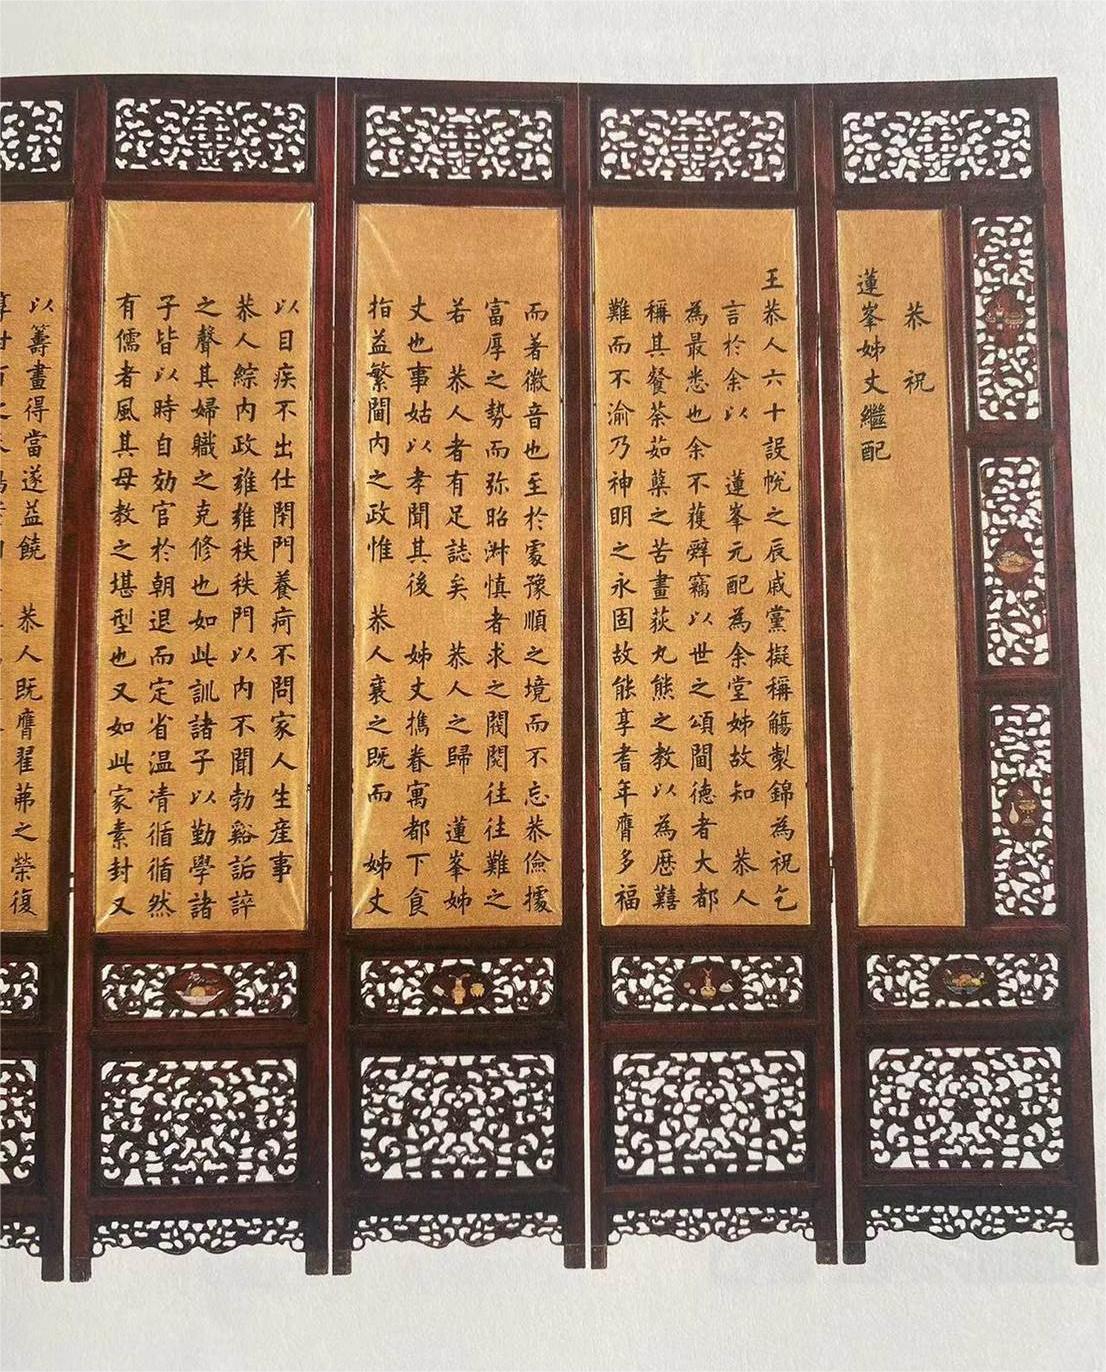 恭祝
蓮峯姊丈繼配
王恭人六十設帨之辰戚黨擬稱觴製錦為祝乞
言於余以 蓮峯元配為余堂姊故知 恭人
為最悉也余不獲辭竊以世之頌閫德者大都
稱其餐荼茹蘗之苦畫荻丸熊之教以為歷囏
難而不渝乃神明之永固故能享耆年膺多福
而著徽音也至於處豫順之境而不忘恭儉據
富厚之勢而弥昭淑慎者求之閥閱往往難之
若 恭人者有足誌矣 恭人之歸 蓮峯姊
丈也事姑以孝聞其後 姊丈攜眷寓都下食
指益繁閫內之政惟 恭人襄之既而 姊丈
以目疾不出仕閉門養疴不問家人生產事
恭人綜內政雍雍秩秩門以內不聞勃谿詬誶
之聲其婦職之克修也如此訓諸子以勤學諸
子皆以時自効官於朝退而定省温凊循循然
有儒者風其母教之堪型也又如此家素封又
以籌畫得當遂益饒 恭人既膺翟茀之榮復